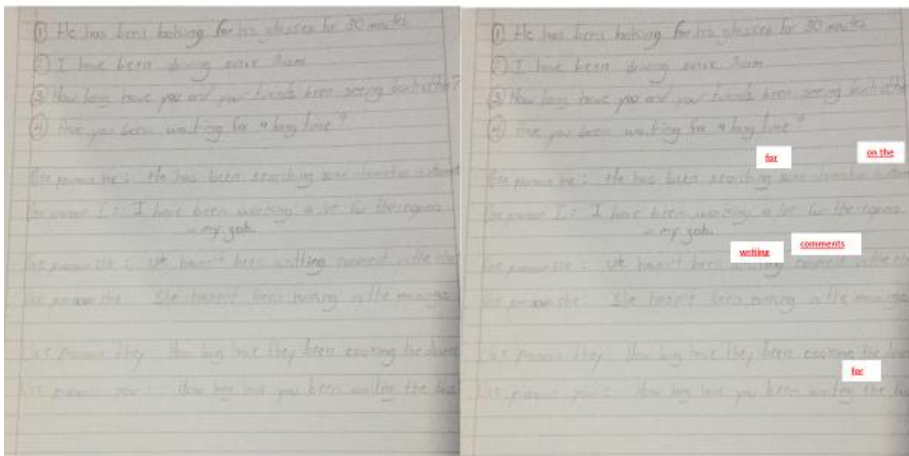 ① He has been looking for his glasses for 30 minutes
② I have been driving since 8am
③ How long have you and your friends been seeing each other?
④ Have you been waiting for a long time?
Use pronoun he: He has been searching some information
Use pronoun I: I have been working a lot for the
my job.
Use pronoun we: We haven't been writting comment in the
Use pronoun she: She hasn't been running in the mornings
Use pronoun they How long have they been cooking the dinner
Use pronoun you: How long have you been waiting the bus
① He has been looking for his glasses for 30 minutes
② I have been driving since 8am
③ How long have you and your friends been seeing each other
④ Have you been waiting for a long time?
for
on the
Use pronoun he: He has been searching some information
Use pronoun I: I have been working a lot for the
my job.
writting
comments
Use pronoun we: We haven't been in the
Use pronoun she: She hasn't been running in the mornings
Use pronoun they How long have they been cooking the
for
Use pronoun you: How long have you been waiting the